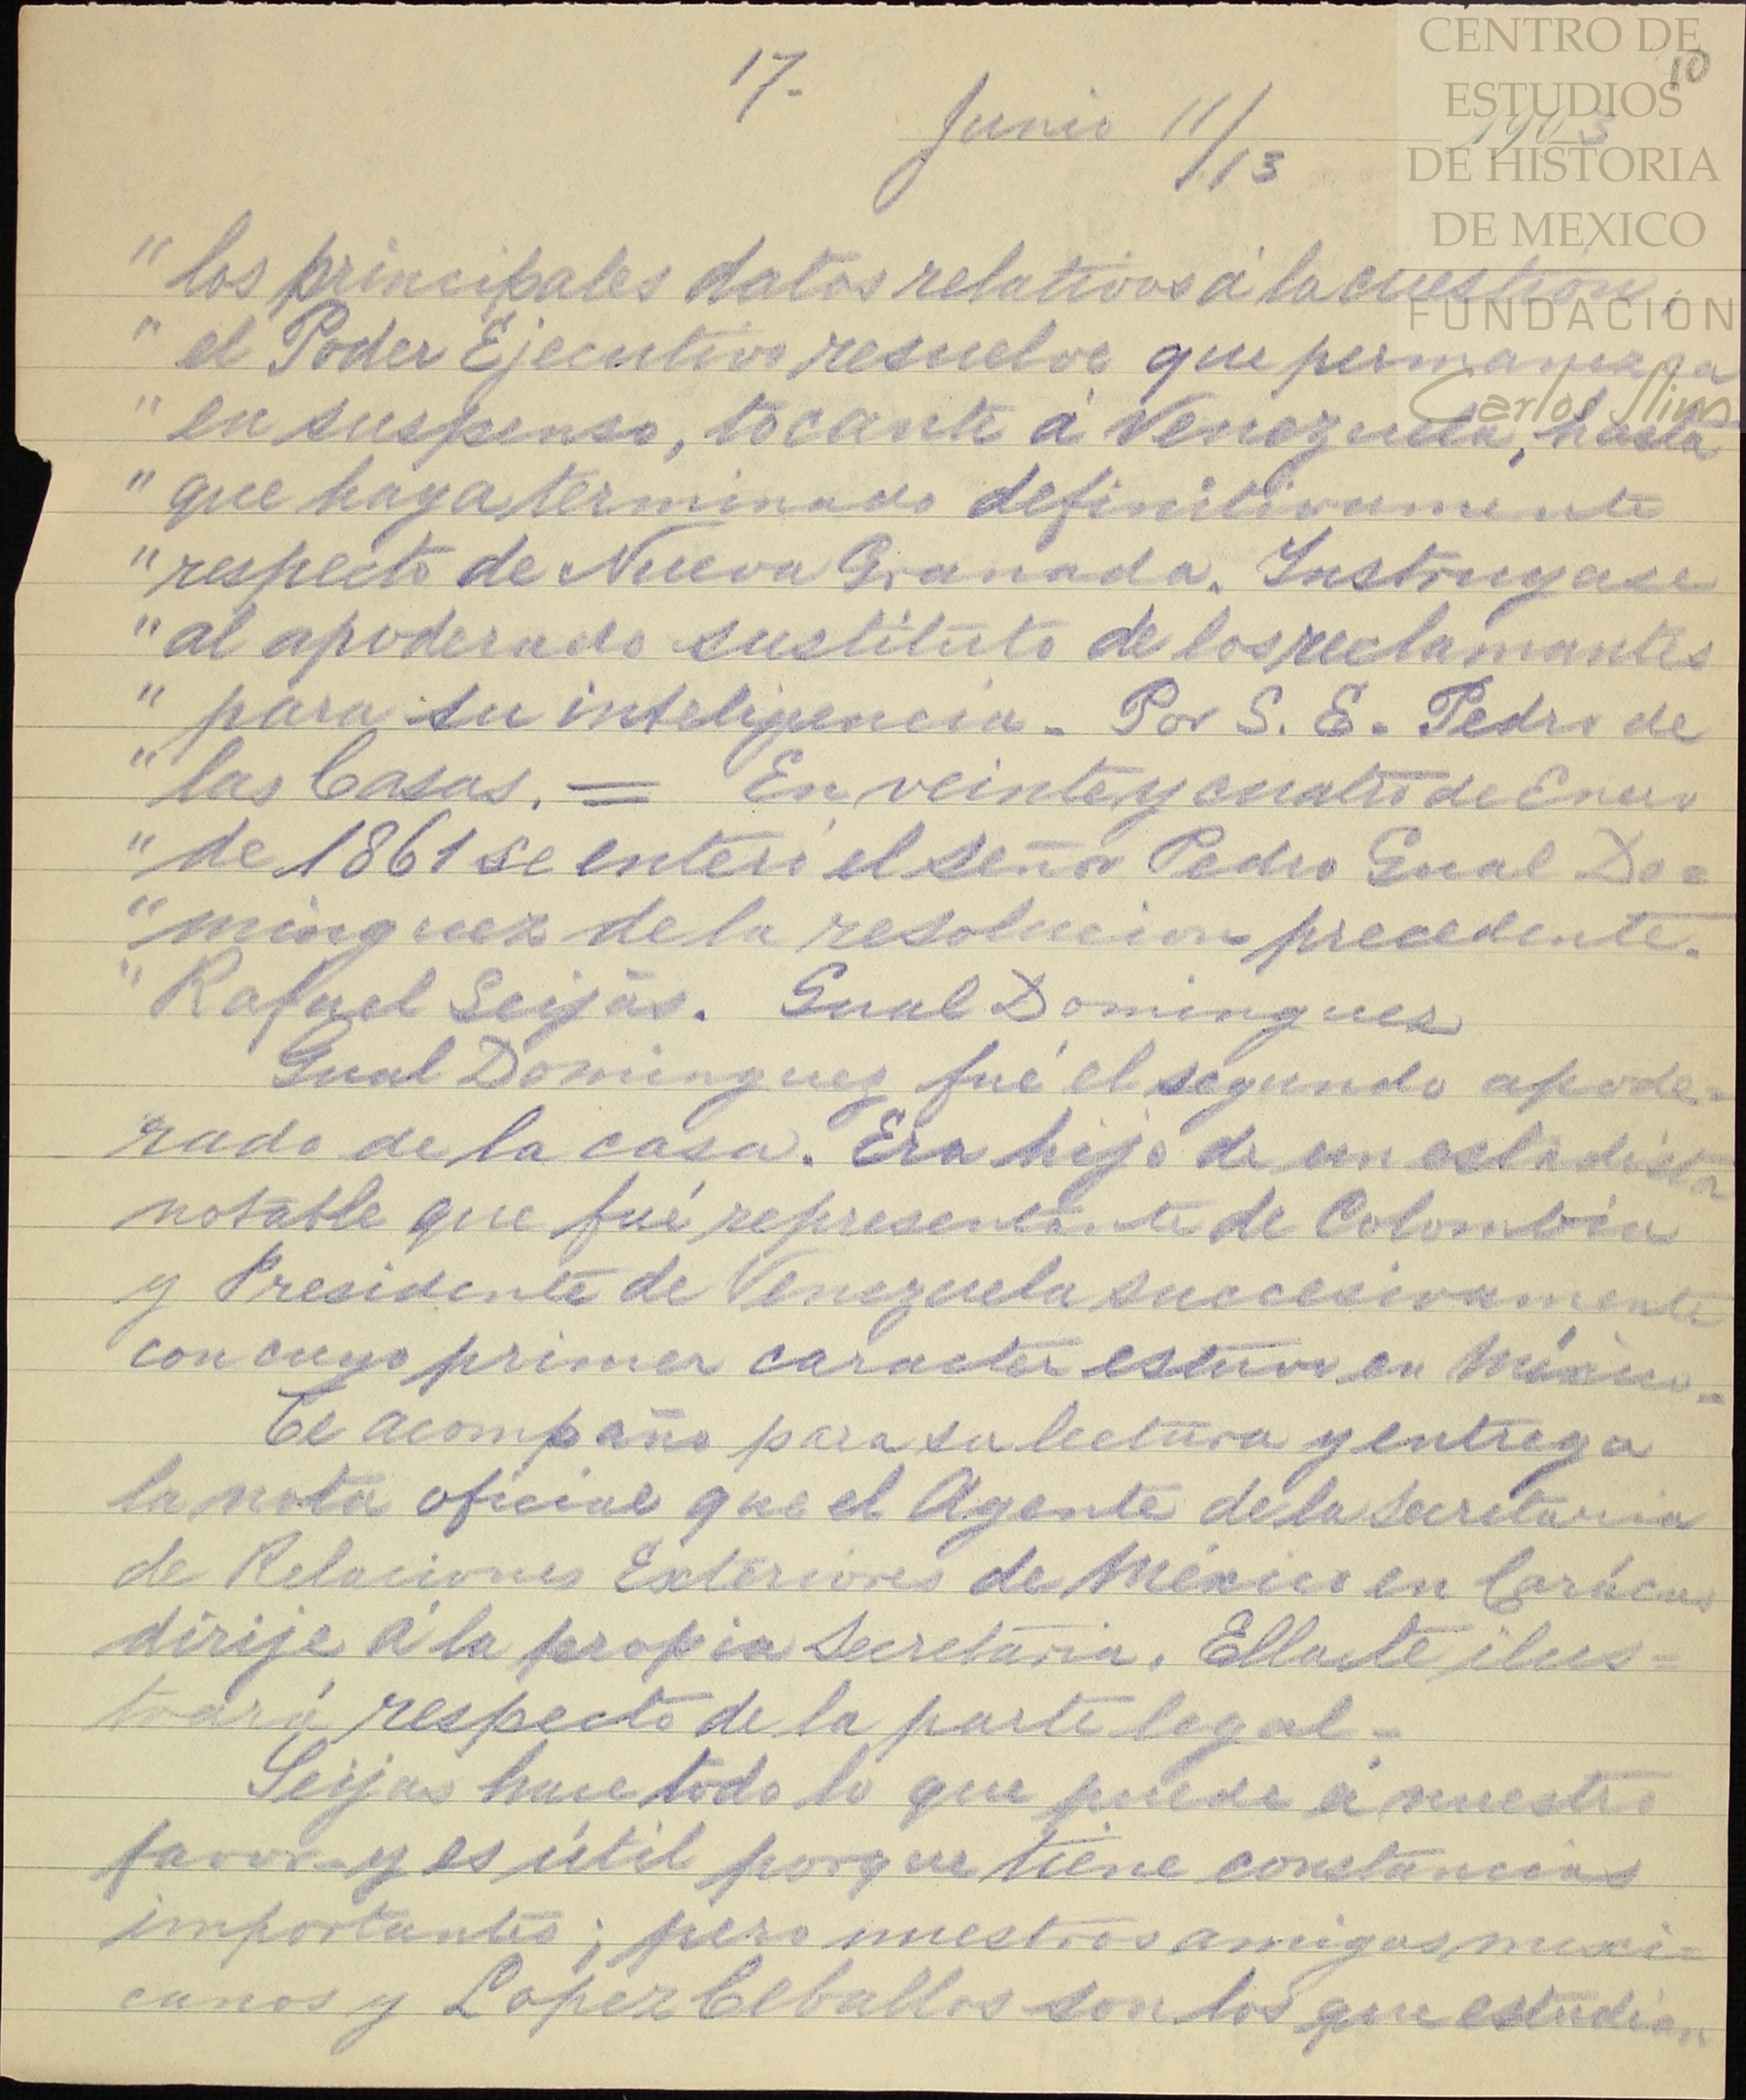 17.
10
Junio 11/13 1903
" los principales datos relativos á la cuestión,
" el Poder Ejecutivo resuelve que permanezca
" en suspenso, tocante á Venezuela, hasta
" que haya terminado definitivamente
" respecto de Nueva Granada. Instruyase
" al apoderado sustituto de los reclamantes
" para su inteligencia - Por S. E. Pedro de
" las Casas. = En veinte y cuatro de Enero
" de 1861 se enteró el señor Pedro Gual Do=
" minguez de la resolucion precedente.
" Rafael Seijas. Gual Dominguez
Gual Dominguez fué el segundo apode=
rado de la casa. Era hijo de un estadista
notable que fué representante de Colombia
y Presidente de Venezuela succesivamente
con cuyo primer caracter estuvo en México.
Te acompaño para su lectura y entrega
la nota oficial que el Agente de la Secretaria
de Relaciones Exteriores de México en Carácas
dirije á la propia Secretaria. Ella te ilus=
trará respecto de la parte legal.
Seijas hace todo lo que puede á nuestro
favor y es útil porque tiene constancias
importantes; pero nuestros amigos mexi=
canos y Lopez Ceballos son los que estudian
CENTRO DE
ESTUDIOS
DE HISTORIA
DE MEXICO
FUNDACIÓN
Carlos Slim